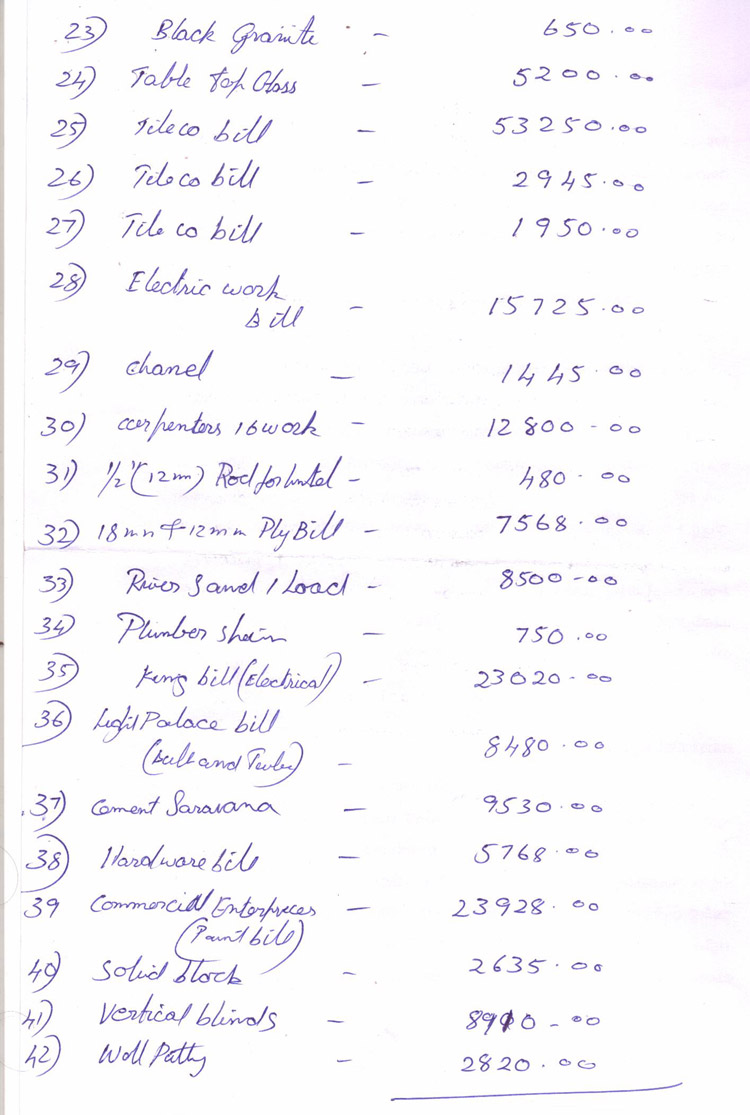 23) Black Granite - 650.00
24) Table top Glass - 5200.00
25) Tileco bill - 53250.00
26) Tile co bill - 2945.00
27) Tile co bill - 1950.00
28) Electric work
bill - 15725.00
29) chanel - 1445.00
30) carpenters 16 work - 12800-00
31) 1/2" (12mm) Rod for lintel - 480.00
32) 18mm & 12mm Ply Bill - 7568.00
33) River Sand 1 Load - 8500-00
34) Plumber - 750.00
35) King bill (Electrical) - 23020-00
36) Light Palace bill
(bulb and Tube) - 8480.00
.37) Cement Saravana - 9530.00
38) Hardware bill - 5768.00
39 Commercial Enterprices - 23928.00
(Paint bill)
40) Solid block - 2635.00
41) Vertical blinds - 8910-00
42) Wall Patty - 2820.00